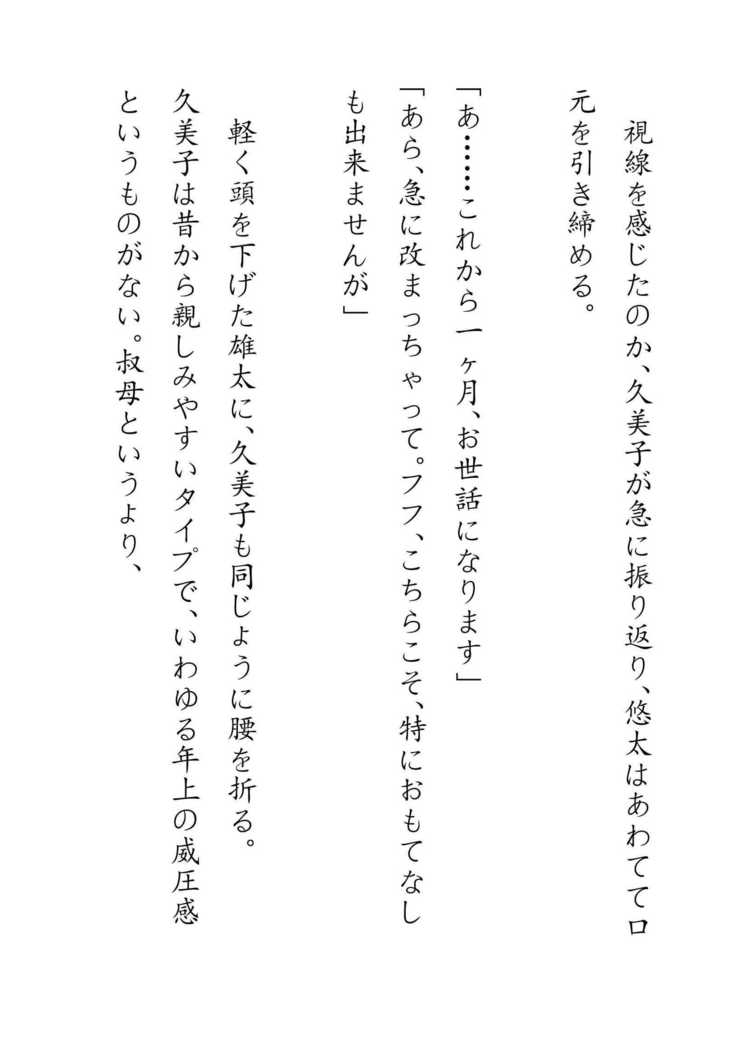 視線を感じたのか、久美子が急に振り返り、悠太はあわてて口
元を引き締める。
「あ……これから一ヶ月、お世話になります」
「あら、急に改まっちゃって。フフ、こちらこそ、特におもてなし
も出来ませんが」
軽く頭を下げた雄太に、久美子も同じように腰を折る。
久美子は昔から親しみやすいタイプで、いわゆる年上の威圧感
というものがない。叔母というより、